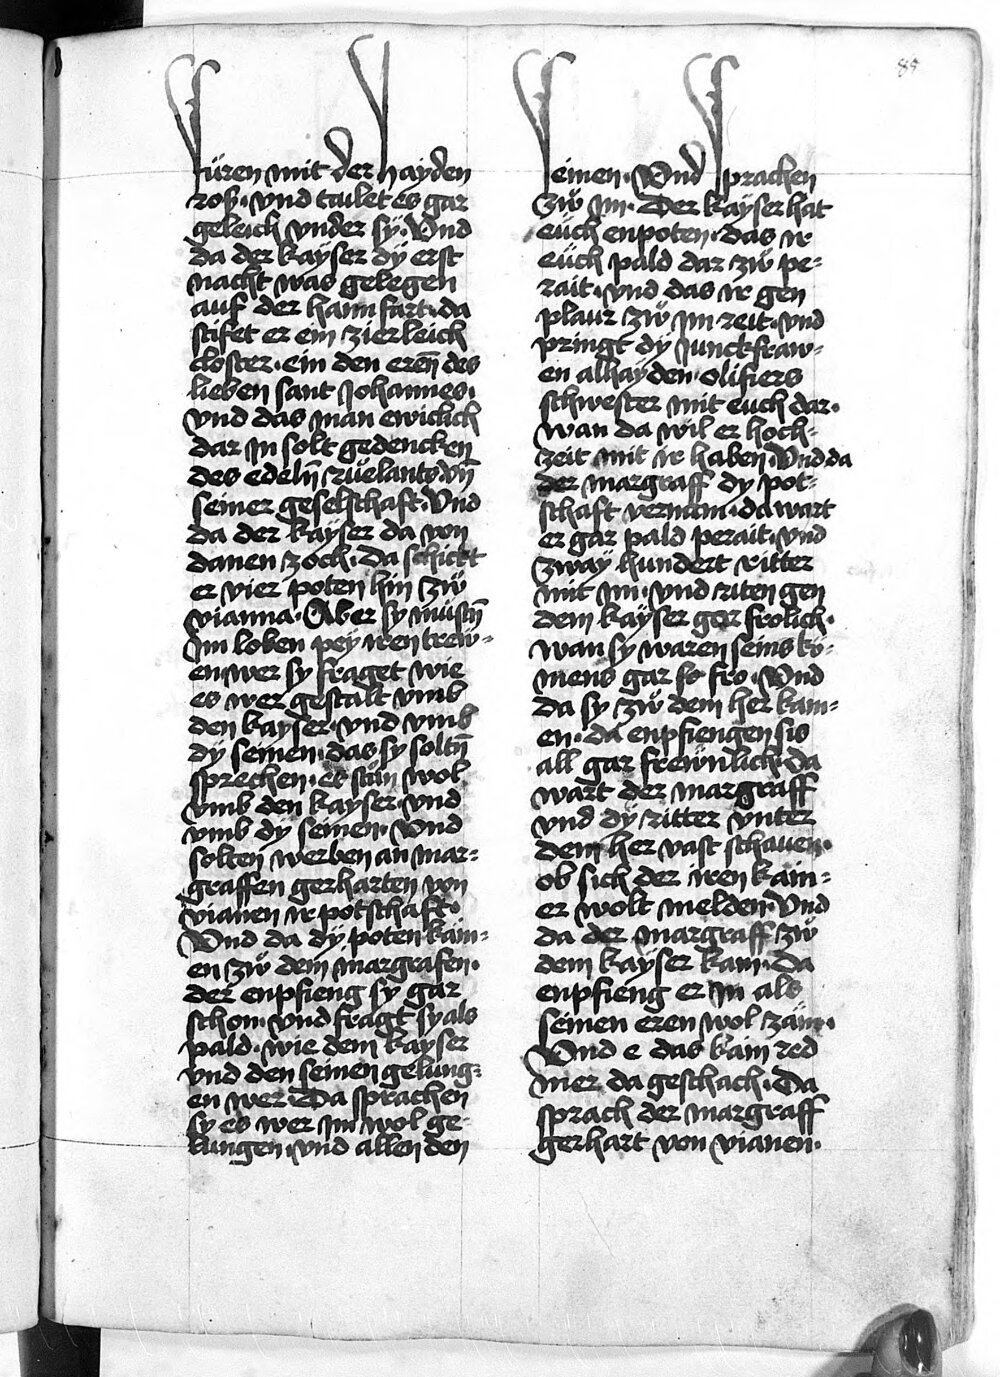 85
füren mit der hayden
roß · vnd taulet es gar
geleich vnder sÿ · Vnd
da der kaÿser dÿ erst
nacht was gelegen
auf der haim fart · da
stifet er ein zierleich
closter · ein den eren̄ des
lieben sant Johannes ·
vnd das man ewiclich
dar Jn solt gedencken
des edelñ rüelants vñ
seiner geselschaft · Vnd
da der kayser da von
danen zoch · da schickt
er vier poten hin zẅ
vianna · Aber sy müstñ
Jm loben peÿ iren trew-
en wer sy fraget wie
es wer gestalt vmb
den kayser · vnd vmb
dÿ seinen · das sy soltñ
sprechen · es stün wol
vmb den kayser · vnd
vmb dÿ seinen · Vnd
solten werben an mar=
graffen gerharten von
vianen ir potschaft ·
Vnd da dÿ poten kam=
en zẅ dem margrafen ·
der enpfieng sy gar
schon · vnd fragt sy als
pald · wie dem kayser
vnd den seinen gelung=
en wer · Da sprachen
sy es wer im wol ge-
lungen · vnd allen den
seinen · Vnd sprachen
zẅ im · Der kaÿser hat
eüch enpoten · das ir
eüch pald dar zẅ pe=
rait · vnd das ir gen
plaur zẅ im reit · vnd
pringt dÿ Junckfraw=
en alhayden · olifiers
schwester mit euch dar ·
wan da wil er hoch=
zeit mit ir haben · Vnd da
der margraff dÿ pot=
schaft vernam · da wart
er gar pald perait · vnd
zwaÿ hundert ritter
mit im · vnd riten gen
dem kaÿser gar frolich ·
wan sy waren seins kü=
mens gar so fro · Vnd
da sy zẅ dem her kam=
en · da enpfiengen sis
all gar freẅnlich · da
wart der margraff
vnd dÿ ritter vnter
dem her vast schauen ·
ob sich der iren kain=
er wolt melden · Vnd
da der margraff zẅ
dem kaÿser kam · da
enpfieng er in als
seinen eren wol zäm ·
Vnd e das kain red
mer da geschach · Da
sprach der margraff
gerhart von vianen ·